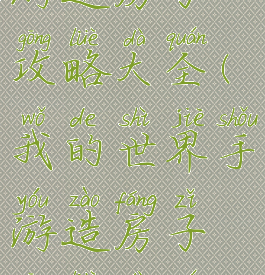 gōng lüè dà quán
攻略大全(
wǒ de shì jiè shǒu
我的世界手
yóu zào fáng zǐ
游造房子